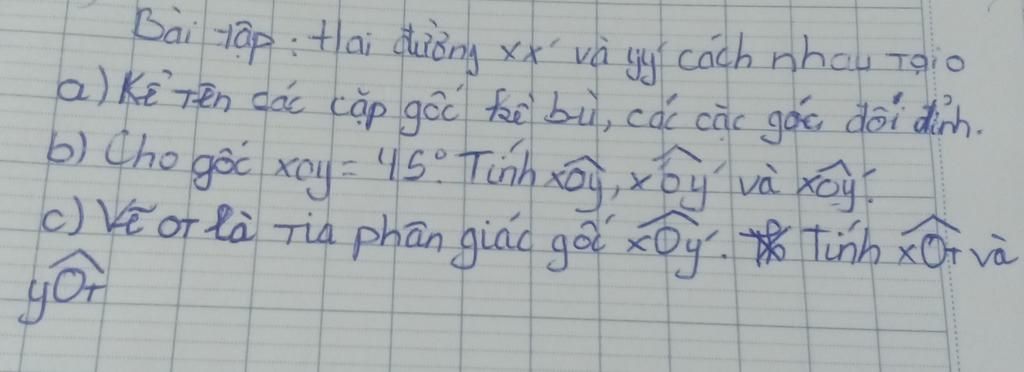 Bài tập: Hai đường xx' và yy' cách nhau tại O
a) Kể tên các cặp góc kề bù, các cặc góc đối đỉnh.
b) Cho góc xOy = 45°. Tính xÔy, x'Ôy' và xÔy'.
c) Vẽ Ot là tia phân giác góc xÔy'. Tính xÔt và
yÔt